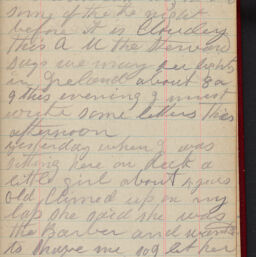 some of the the night
before it is Cloudey
this A M the Steward
says we may see lights
in Ireland about 8 or
9 this evening I must
write some letters this
afternoon
yesterday when I was
sitting here on deck a
little girl about 4 years
old Climed up on my
lap she said she was
the Barber and wants
to shave me so I let her